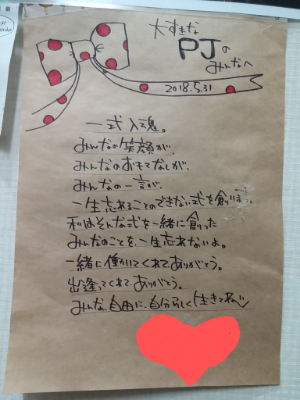 大すきな
PJの
みんなへ
2018.5.31
一式入魂。
みんなの笑顔が、
みんなのおもてなしが、
みんなの一言が、
一生忘れることのできない式を創ります。
私はそんな式を一緒に創った
みんなのことを、一生忘れないよ。
一緒に働いてくれてありがとう。
出逢ってくれてありがとう。
みんな、自由に、自分らしく生きてね